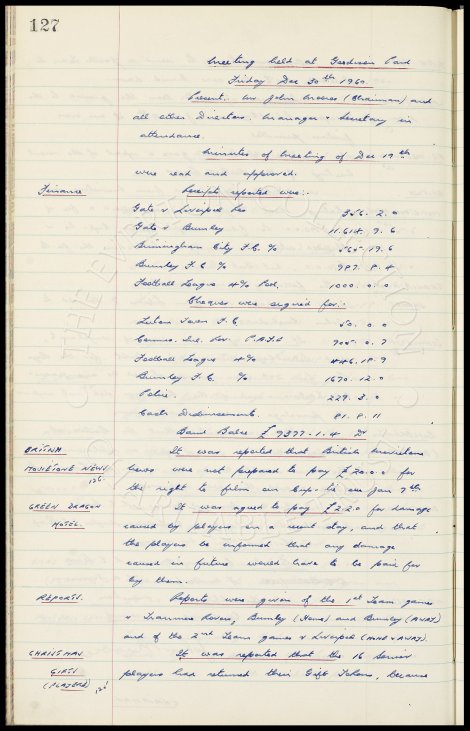 127
Meeting held at Goodison Park
Friday Dec 30th 1960.
Present:- Mr John Moores (Chairman) and
all other Directors. Manager & Secretary in
attendance.
Minutes of Meeting of Dec 19th
were read and approved.
Finance
Receipts reported were:-
Gate v Liverpool Res 356. 2. 0
Gate v Burnley 11.614. 9. 6
Birmingham City F.C. % 565. 19. 6
Burnley F.C % 987. 8. 4
Football League 4% Pool. 1000. 0. 0
Cheques were signed for:-
Luton Town F.C 50. 0. 0
Comms. Inl. Rev. P.A.Y.E 905. 0. 7
Football League 4% 446. 18. 9
Burnley F.C. % 1670. 12. 0
Police. 229. 3. 0
Cash Disbursements. 81. 8. 11
Bank Balce £9377-1. 4 Dr
BRITISH
MOVIETONE NEWS
126
It was reported that British Movietone
News were not prepared to pay £20.0.0 for
the right to film our Cup tie on Jan 7th
GREEN DRAGON
HOTEL
It was agreed to pay £2.2.0 for damage
caused by players on a recent day, and that
the players be informed that any damage
caused in future would have to be paid for
by them.
REPORTS.
Reports were given of the 1st Team games
v Tranmere Rovers, Burnley (Home) and Burnley (AWAY)
and of the 2nd Team games v Liverpool (HOME & AWAY).
CHRISTMAS
GIFTS
(PLAYERS)
It was reported that the 16 Senior
players had returned their Gift Tokens, because